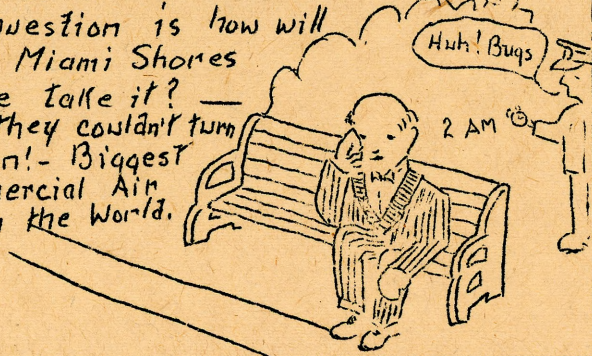 question is how will
Miami Shores
take it? —
they couldn't turn
Biggest
Air
the World.
Huh! Bugs
2 AM